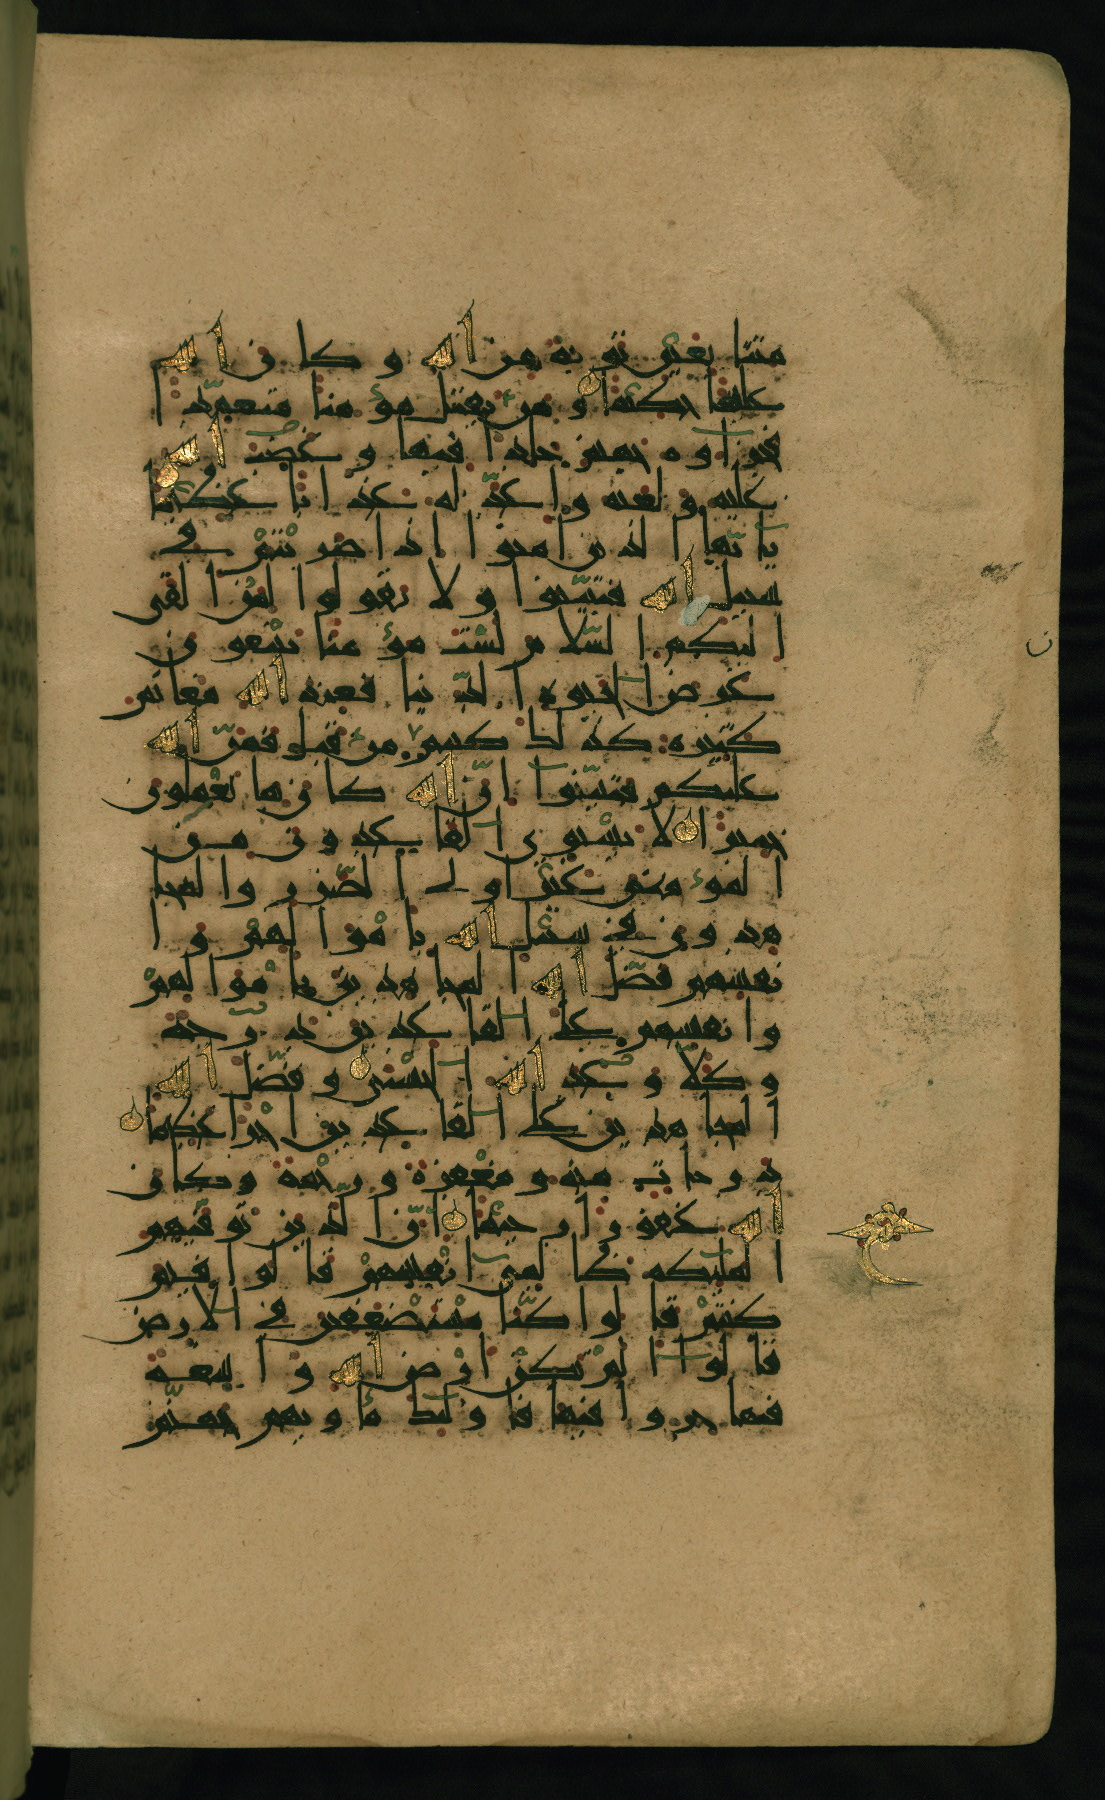 متتابعين توبة من الله وكان الله
عليما حكيما ومن يقتل مؤمنا متعمدا
فجزاوه جهنم خلدا فيها وغضب الله
عليه ولعنه واعد له عذابا عظيما
يايها الذين امنوا اذا ضربتم في
سبيل الله فتبينوا ولا تقولوا لمن القى
اليكم السلام لست مؤمنا تبتغون
عرض الحيوة الدنيا فعند الله مغانم
كثيرة كذلك كنتم من قبل فمن الله
عليكم فتبينوا ان الله كان بما تعملون
خبيرا لا يستوى القاعدون من
المؤمنين غير اولى الضرر والمجا
هدون في سبيل الله باموالهم وا
نفسهم فضل الله المجاهدين باموالهم
وانفسهم على القاعدين درجة
وكلا وعد الله الحسنى وفضل الله
المجاهدين على القاعدين اجرا عظيما
درجات منه ومغفرة ورحمة وكان
الله غفورا رحيما ان الذين توفيهم
الملئكة ظالمى انفسهم قالوا فيم
كنتم قالوا كنا مستضعفين في الارض
قالوا الم تكن ارض الله واسعة
فتهاجروا فيها فاولئك ماويهم جهنم